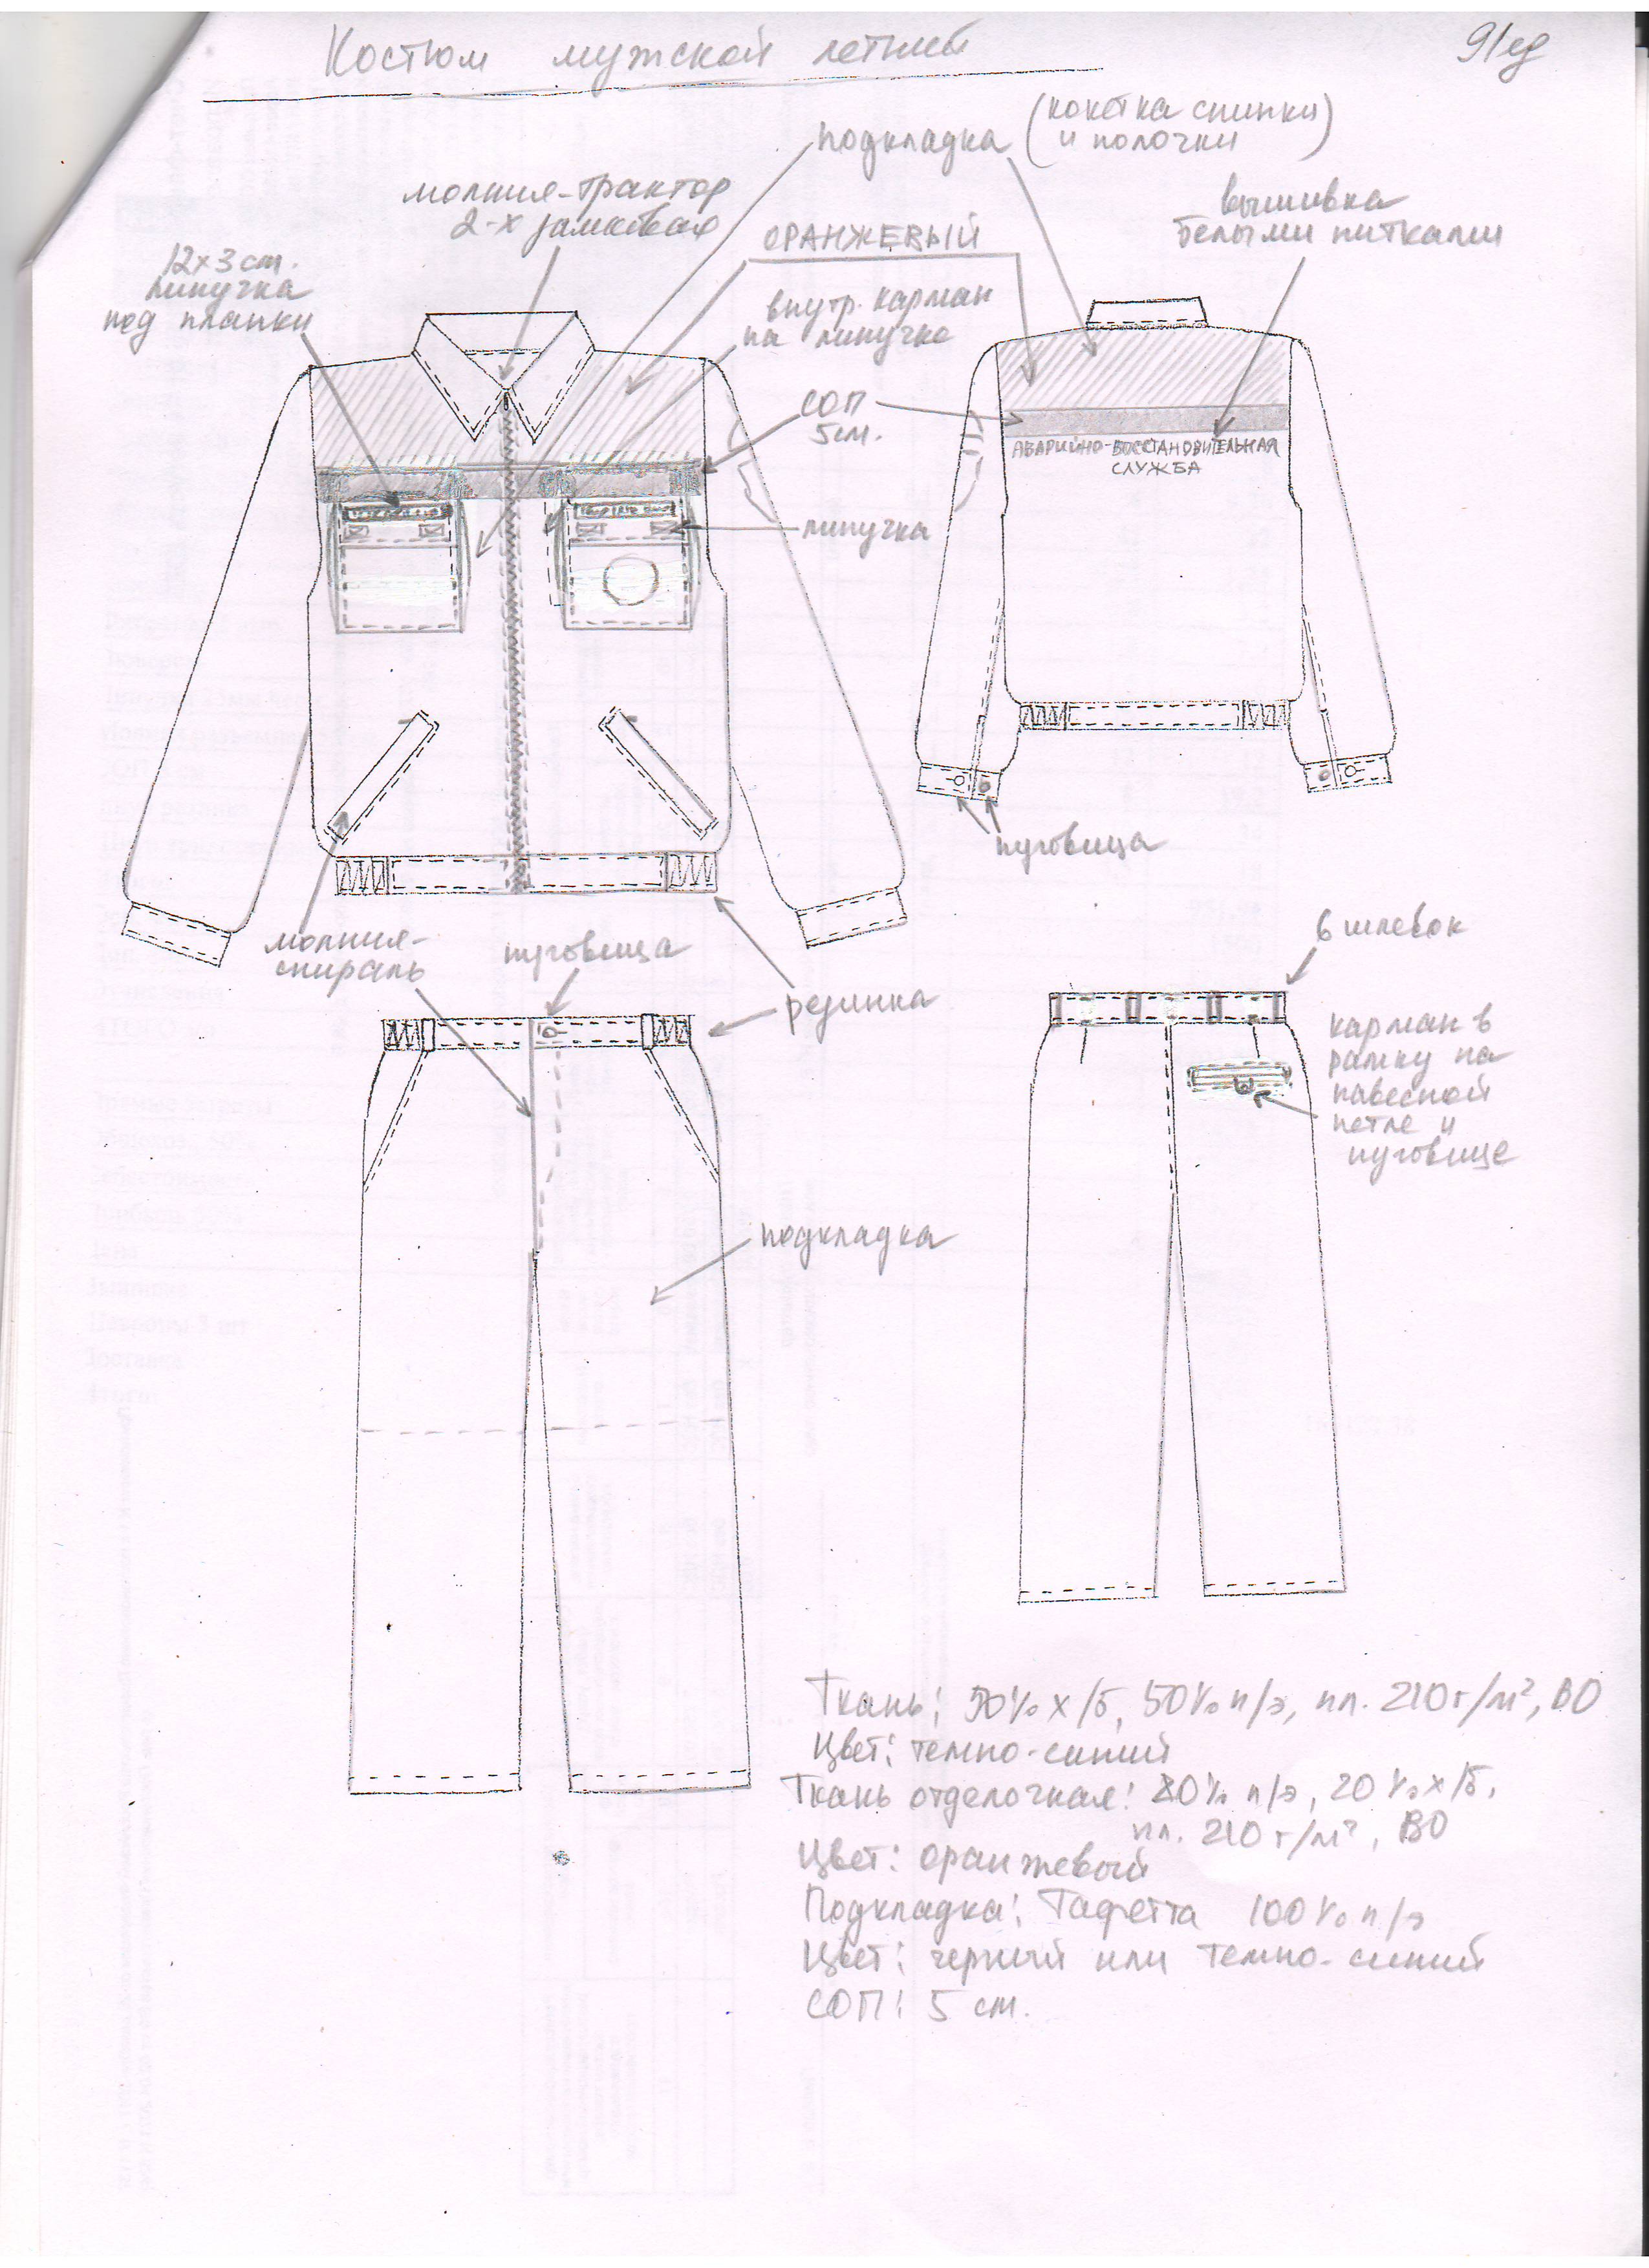 Костюм мужской летний
91ед
подкладка (кокетка спинки
и полочки)
молния-трактор
2-х замковая
вышивка
белыми нитками
ОРАНЖЕВЫЙ
12х3 см.
липучка
под планки
внутр. карман
на липучке
СОП
5см.
АВАРИЙНО-ВОССТАНОВИТЕЛЬНАЯ
СЛУЖБА
липучка
пуговица
молния-
спираль
пуговица
6 шлевок
резинка
карман в
рамку на
навесной
петле и
пуговице
подкладка
Ткань: 50% х/б, 50% п/э, пл. 210 г/м², ВО
Цвет: темно-синий
Ткань отделочная: 80% п/э, 20% х/б,
пл. 210 г/м², ВО
Цвет: оранжевый
Подкладка: Тафетта 100% п/э
Цвет: черный или темно-синий
СОП: 5 см.